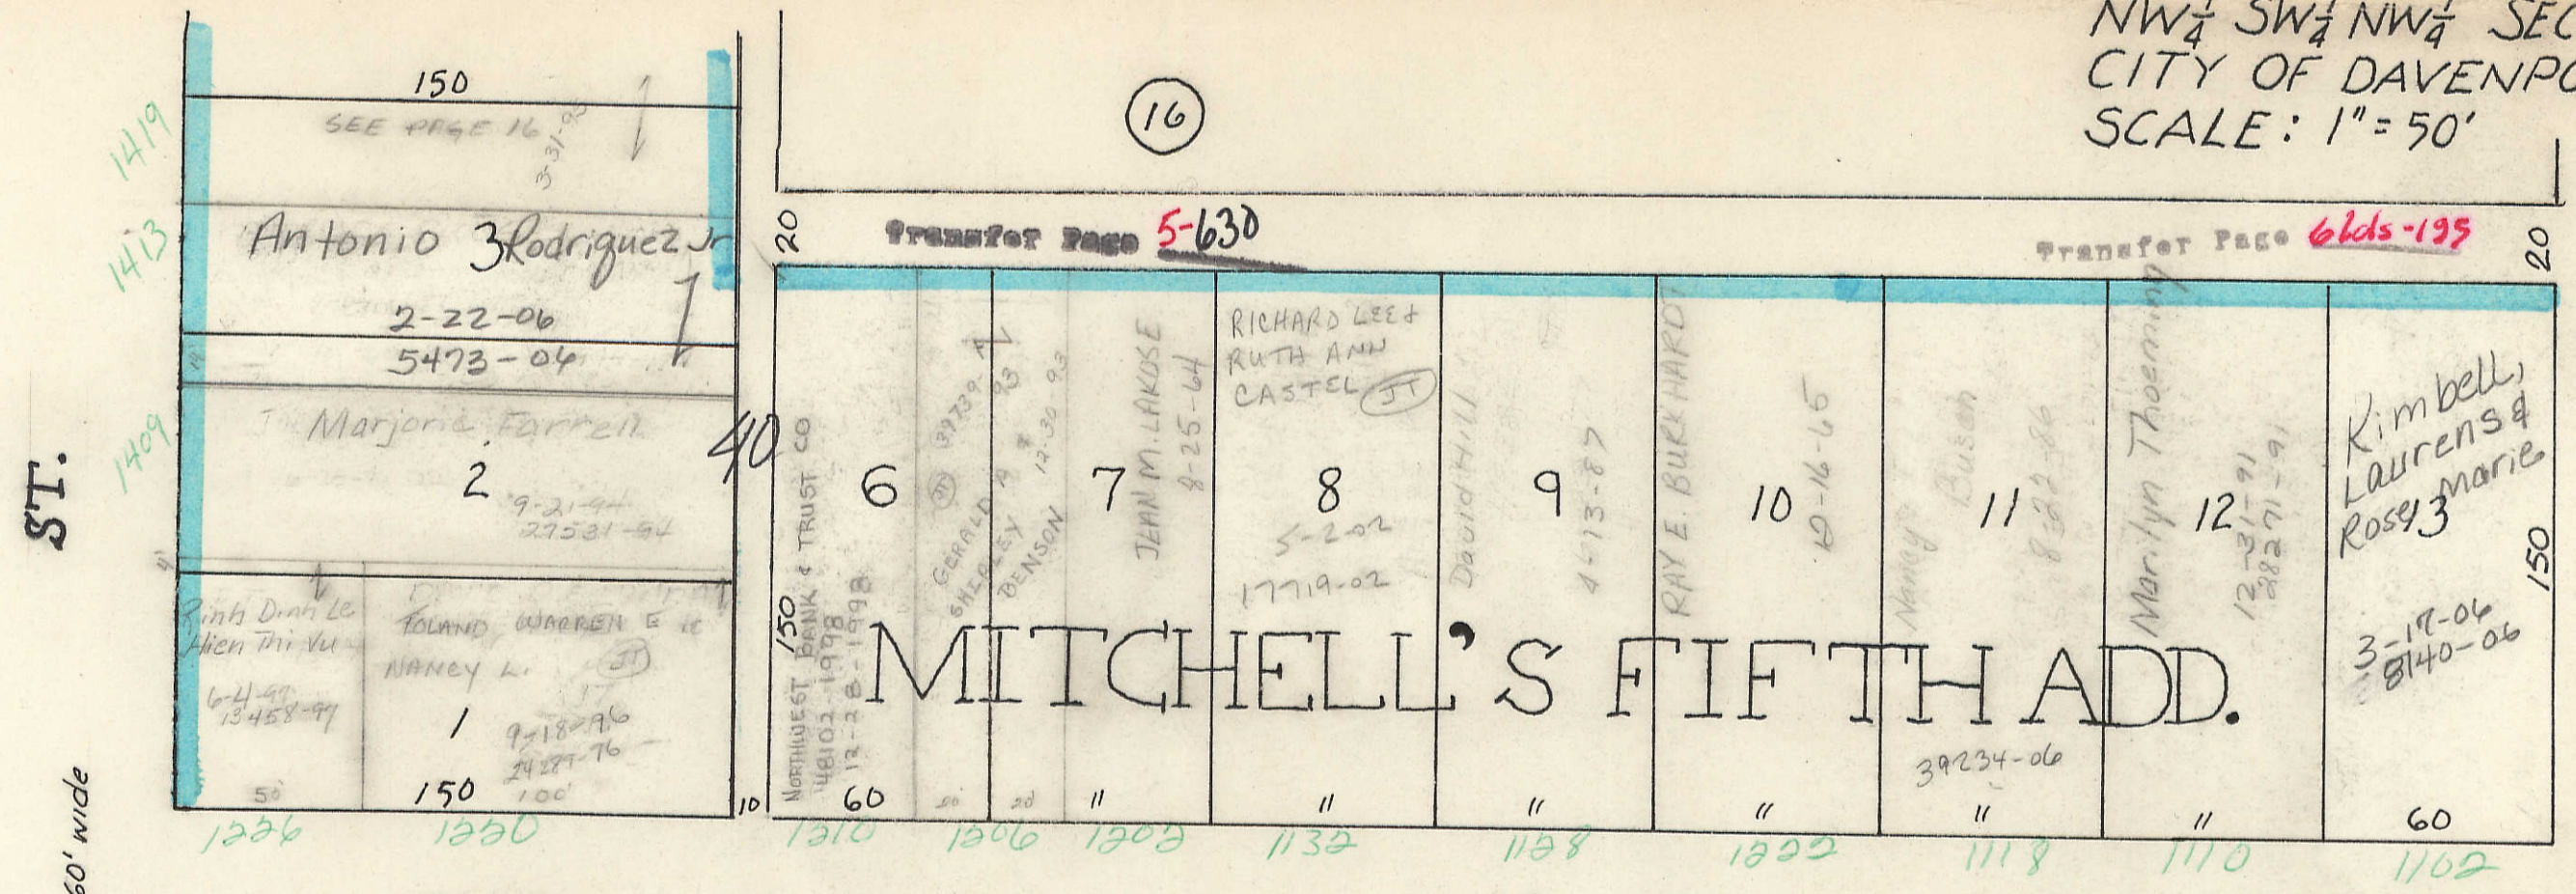 NW¼ SW¼ NW¼ SEC
CITY OF DAVENPO
SCALE: 1"=50'
16
150
SEE PAGE 16
3-31-95
1419
1413
1409
Antonio 3 Rodriquez Jr
2-22-06
5473-06
Marjorie Farrell
2
9-21-94
27531-94
40
ST.
60' wide
Dinh Le
Hien Thi Vu
6-4-97
13458-97
50'
TOLAND WARREN E
NANCY L.
JT
1
9-18-96
150
100'
10
1226
1220
20
Transfer Page 5-630
Transfer Page 6Lds-195
20
NORTHWEST BANK & TRUST CO
48102-1998
12-28-1998
150
6
60
GERALD A &
SHIRLEY
BENSON
JT
39739-93
12-30-93
20'
20'
7
JEAN M. LAKOSE
8-25-64
"
RICHARD LEE &
RUTH ANN
CASTEL JT
8
5-2-02
17719-02
"
David Hill
9
"
RAY E. BURKHARDT
10
"
Nancy Busch
11
8-22-86
39234-06
"
Marilyn Thoenning
12
12-31-91
28271-91
"
Kimbell,
Laurens &
Rose Marie
13
150
3-17-06
8140-06
60
MITCHELL'S FIFTH ADD.
1210
1206
1202
1132
1128
1222
1118
1110
1102